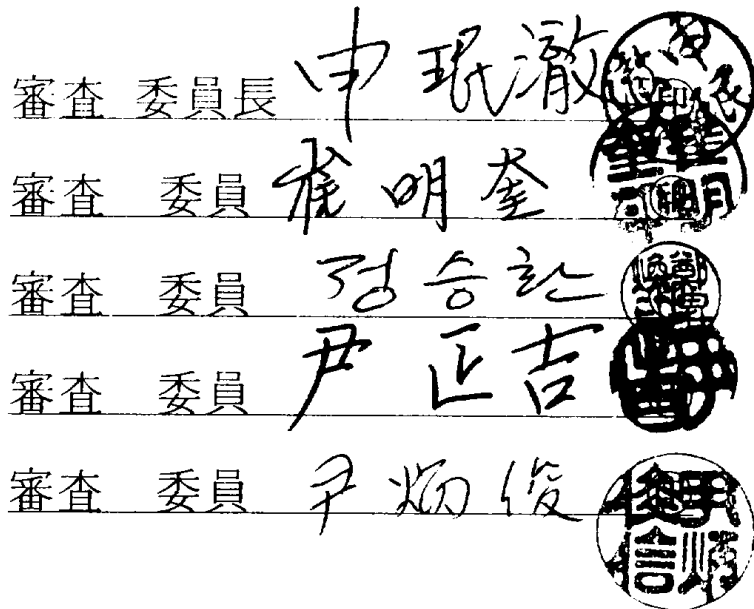 審査 委員長 申珉澈
審査 委員 崔明奎
審査 委員 정승헌
審査 委員 尹正吉
審査 委員 尹炳俊